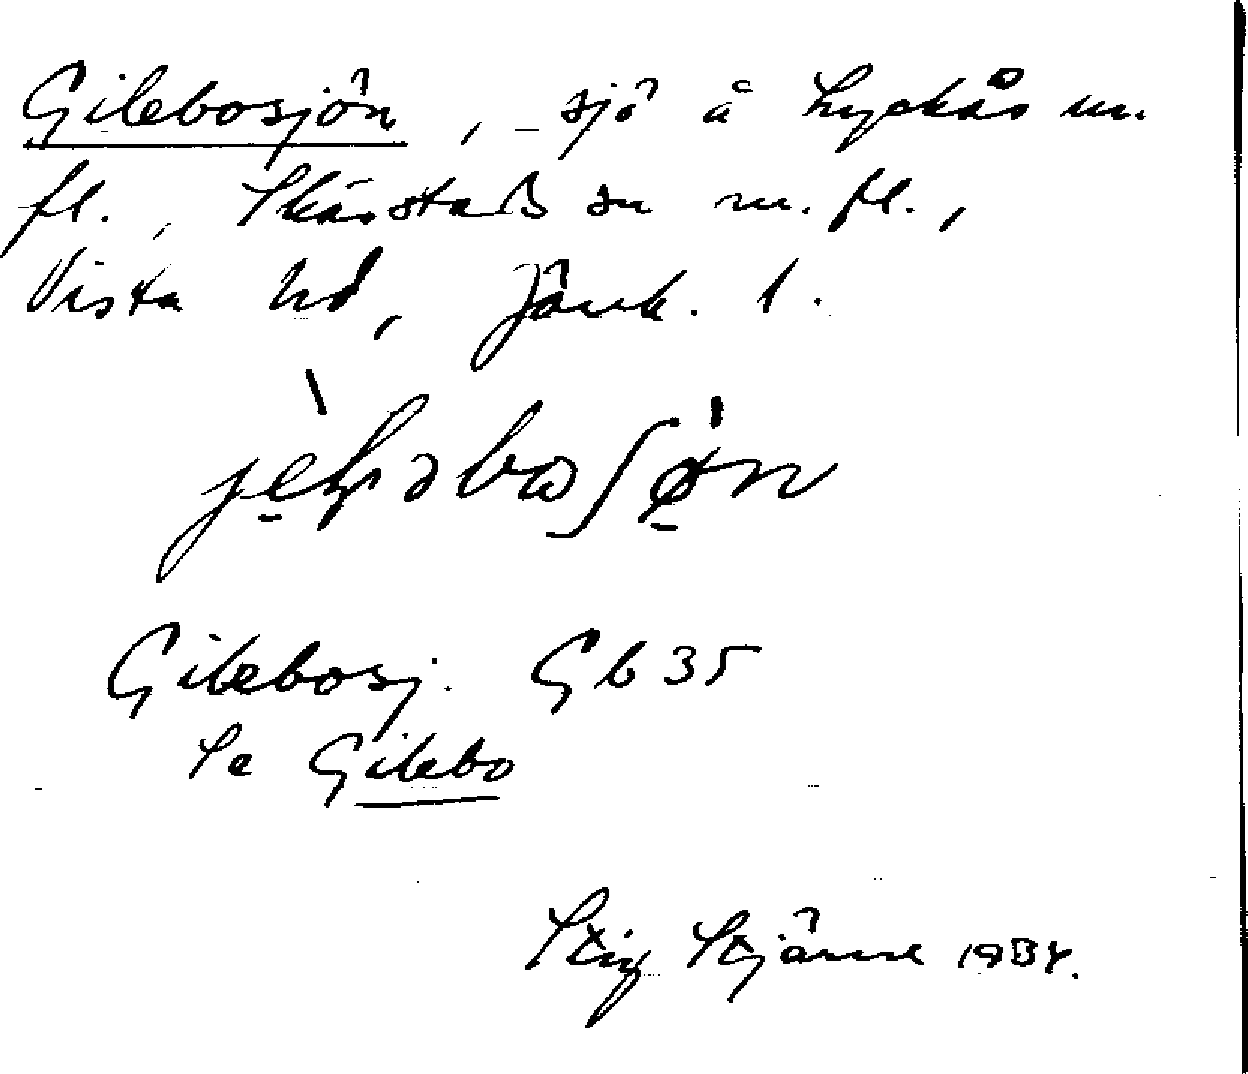 Gilebosjön, sjö å Lyckås m.
fl., Skärstads sn m.fl.,
Vista hd, Jönk. l.
Gilebosj. Gb 35
Se Gilebo
Stig Stjärne 1934.